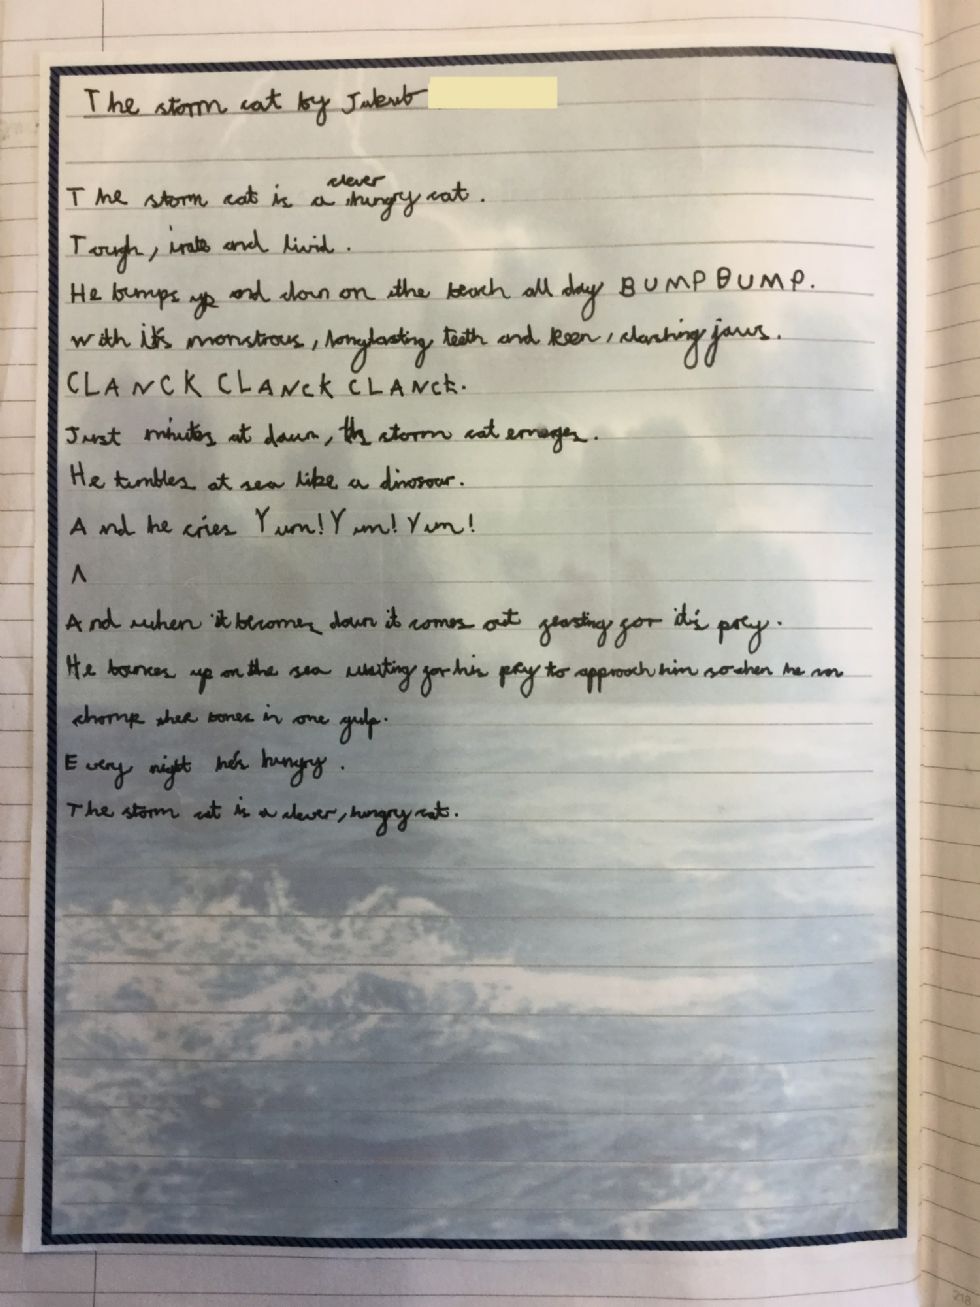 The storm cat by Jakub
The storm cat is a clever hungry cat.
Tough, irate and livid.
He bumps up and down on the beach all day BUMP BUMP.
with it's monstrous, longlasting teeth and keen, clashing jaws.
CLANCK CLANCK CLANCK.
Just minutes at dawn, the storm cat emerges.
He tumbles at sea like a dinosour.
And he cries Yum! Yum! Yum!
A
And when it becomes dawn it comes out feasting for it's prey.
He bounces up on the sea waiting for his prey to approach him so when he
chomp bones in one gulp.
Every night he's hungry.
The storm cat is a clever, hungry cat.